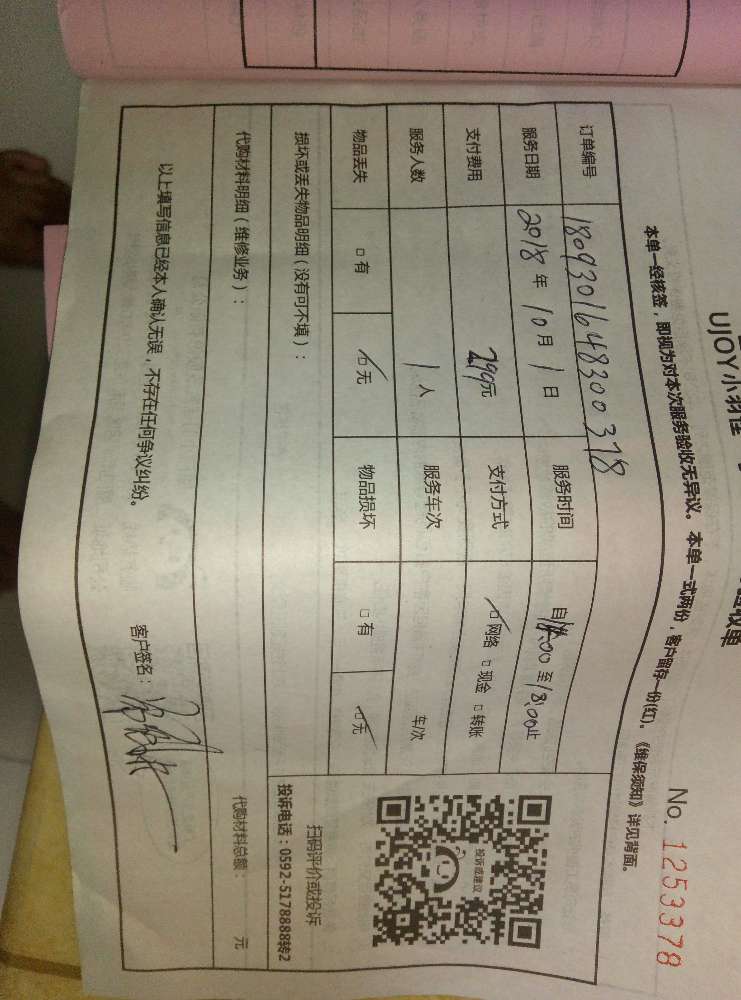 UJOY小羽佳
验收单
No. 1253378
本单一经核签，即视为对本次服务验收无异议。本单一式两份，客户留存一份(红)。《维保须知》详见背面。
订单编号 1809301648300378
服务日期 2018 年 10 月 1 日 服务时间 自 :00 至 18:00 止
支付费用 299元 支付方式 ☑网络 □现金 □转账
服务人数 1 人 服务车次 车/次
物品丢失 □有 ☑无 物品损坏 □有 ☑无
损坏或丢失物品明细（没有可不填）：
扫码评价或投诉
投诉电话：0592-5178888转2
投诉或建议
代购材料明细（维修业务）： 代购材料总额： 元
以上填写信息已经本人确认无误，不存在任何争议纠纷。 客户签名：